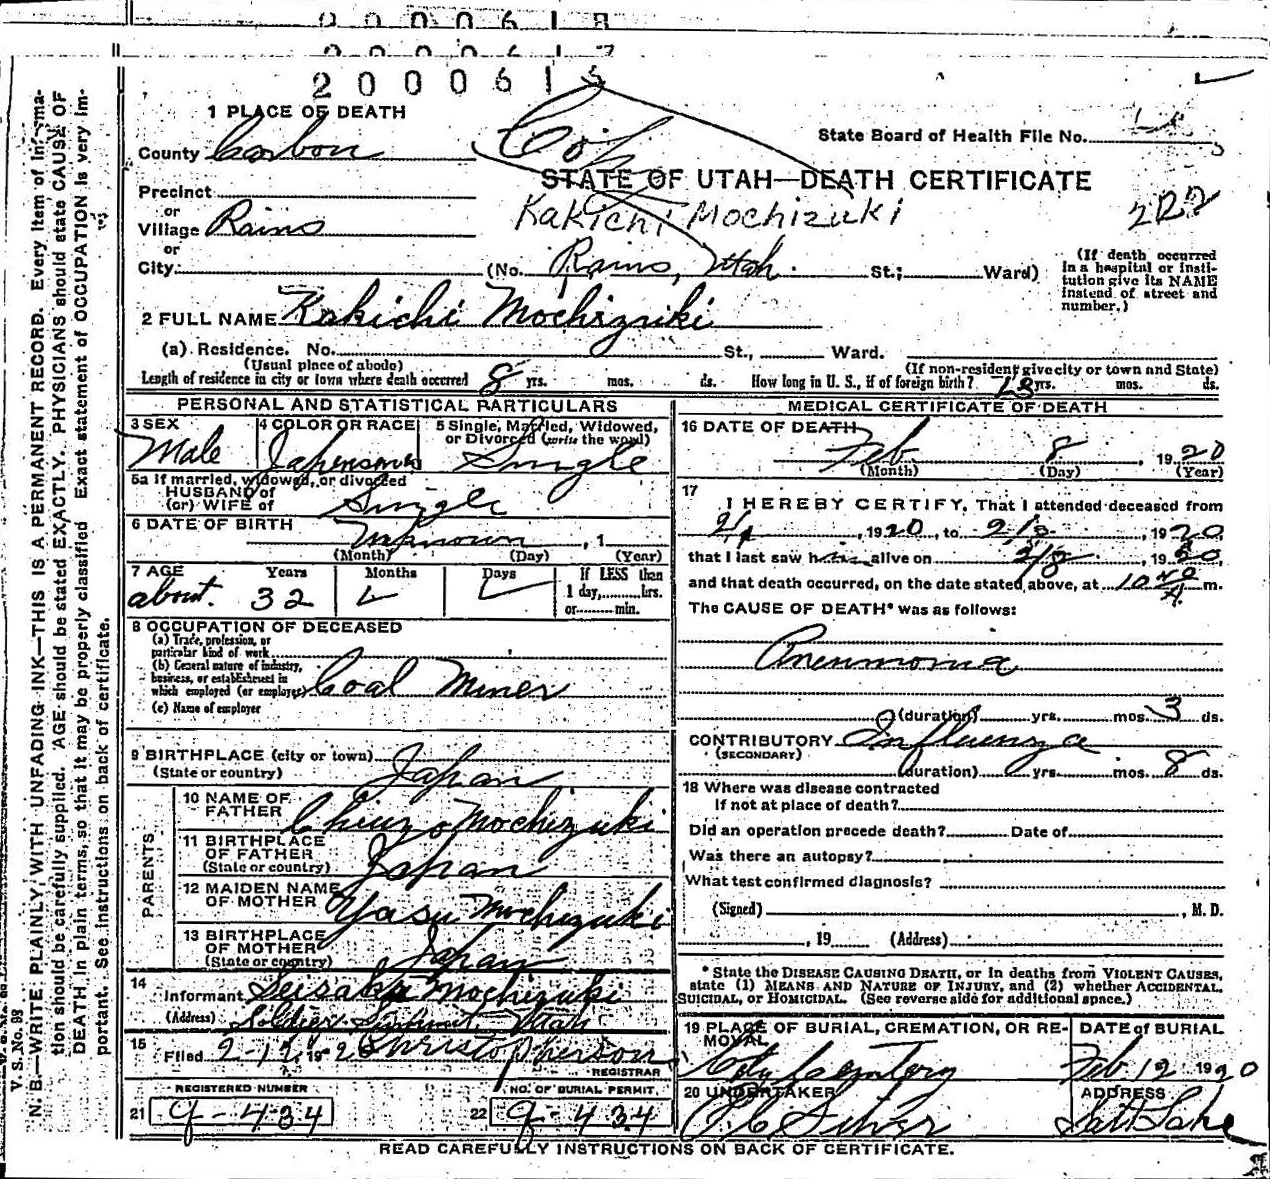 2 0 0 0 6 1 8
2 0 0 0 6 1 7
2 0 0 0 6 1 5
1 PLACE OF DEATH
County Carbon
State Board of Health File No.
STATE OF UTAH—DEATH CERTIFICATE
Precinct
Kakichi Mochizuki
or
Village Rains
or
City (No. Rains, Utah St.; Ward)
(If death occurred in a hospital or institution give its NAME instead of street and number.)
2 FULL NAME Kakichi Mochizuki
(a) Residence. No. St., Ward.
(Usual place of abode) (If non-resident give city or town and State)
Length of residence in city or town where death occurred 8 yrs. mos. ds. How long in U. S., if of foreign birth? 13 yrs. mos. ds.
PERSONAL AND STATISTICAL PARTICULARS
3 SEX 4 COLOR OR RACE 5 Single, Married, Widowed, or Divorced (write the word)
Male Japenese Single
5a If married, widowed, or divorced
HUSBAND of
(or) WIFE of Single
6 DATE OF BIRTH
Unknown , 1
(Month) (Day) (Year)
7 AGE Years Months Days If LESS than
about 32 1 day, hrs.
or min.
8 OCCUPATION OF DECEASED
(a) Trade, profession, or
particular kind of work
(b) General nature of industry,
business, or establishment in
which employed (or employer) Coal Miner
(c) Name of employer
9 BIRTHPLACE (city or town)
(State or country) Japan
PARENTS
10 NAME OF
FATHER Chiuzo Mochizuki
11 BIRTHPLACE
OF FATHER
(State or country) Japan
12 MAIDEN NAME
OF MOTHER Yasu Mochizuki
13 BIRTHPLACE
OF MOTHER
(State or country) Japan
14
Informant Seisaku Mochizuki
(Address) Soldier Summit, Utah
15
Filed 2-12, 1920 Christopherson
REGISTRAR
REGISTERED NUMBER NO. OF BURIAL PERMIT.
21 9-434 22 9-434
MEDICAL CERTIFICATE OF DEATH
16 DATE OF DEATH
Feb 8 , 1920
(Month) (Day) (Year)
17
I HEREBY CERTIFY, That I attended deceased from
, 1920, to , 1920,
that I last saw him alive on 2/8, 1920,
and that death occurred, on the date stated above, at 10 40 A. m.
The CAUSE OF DEATH* was as follows:
Pneumonia
(duration) yrs. mos. 3 ds.
CONTRIBUTORY Influenza
(SECONDARY)
(duration) yrs. mos. 8 ds.
18 Where was disease contracted
if not at place of death?
Did an operation precede death? Date of
Was there an autopsy?
What test confirmed diagnosis?
(Signed) , M. D.
, 19 (Address)
* State the DISEASE CAUSING DEATH, or in deaths from VIOLENT CAUSES,
state (1) MEANS AND NATURE OF INJURY, and (2) whether ACCIDENTAL,
SUICIDAL, or HOMICIDAL. (See reverse side for additional space.)
19 PLACE OF BURIAL, CREMATION, OR RE- DATE of BURIAL
MOVAL
City Cemetery Feb 12 1920
20 UNDERTAKER ADDRESS
Salt Lake
READ CAREFULLY INSTRUCTIONS ON BACK OF CERTIFICATE.
V. S. No. 98
N. B.—WRITE PLAINLY WITH UNFADING INK—THIS IS A PERMANENT RECORD. Every item of informa-
tion should be carefully supplied. AGE should be stated EXACTLY. PHYSICIANS should state CAUSE OF
DEATH in plain terms, so that it may be properly classified. Exact statement of OCCUPATION is very im-
portant. See instructions on back of certificate.